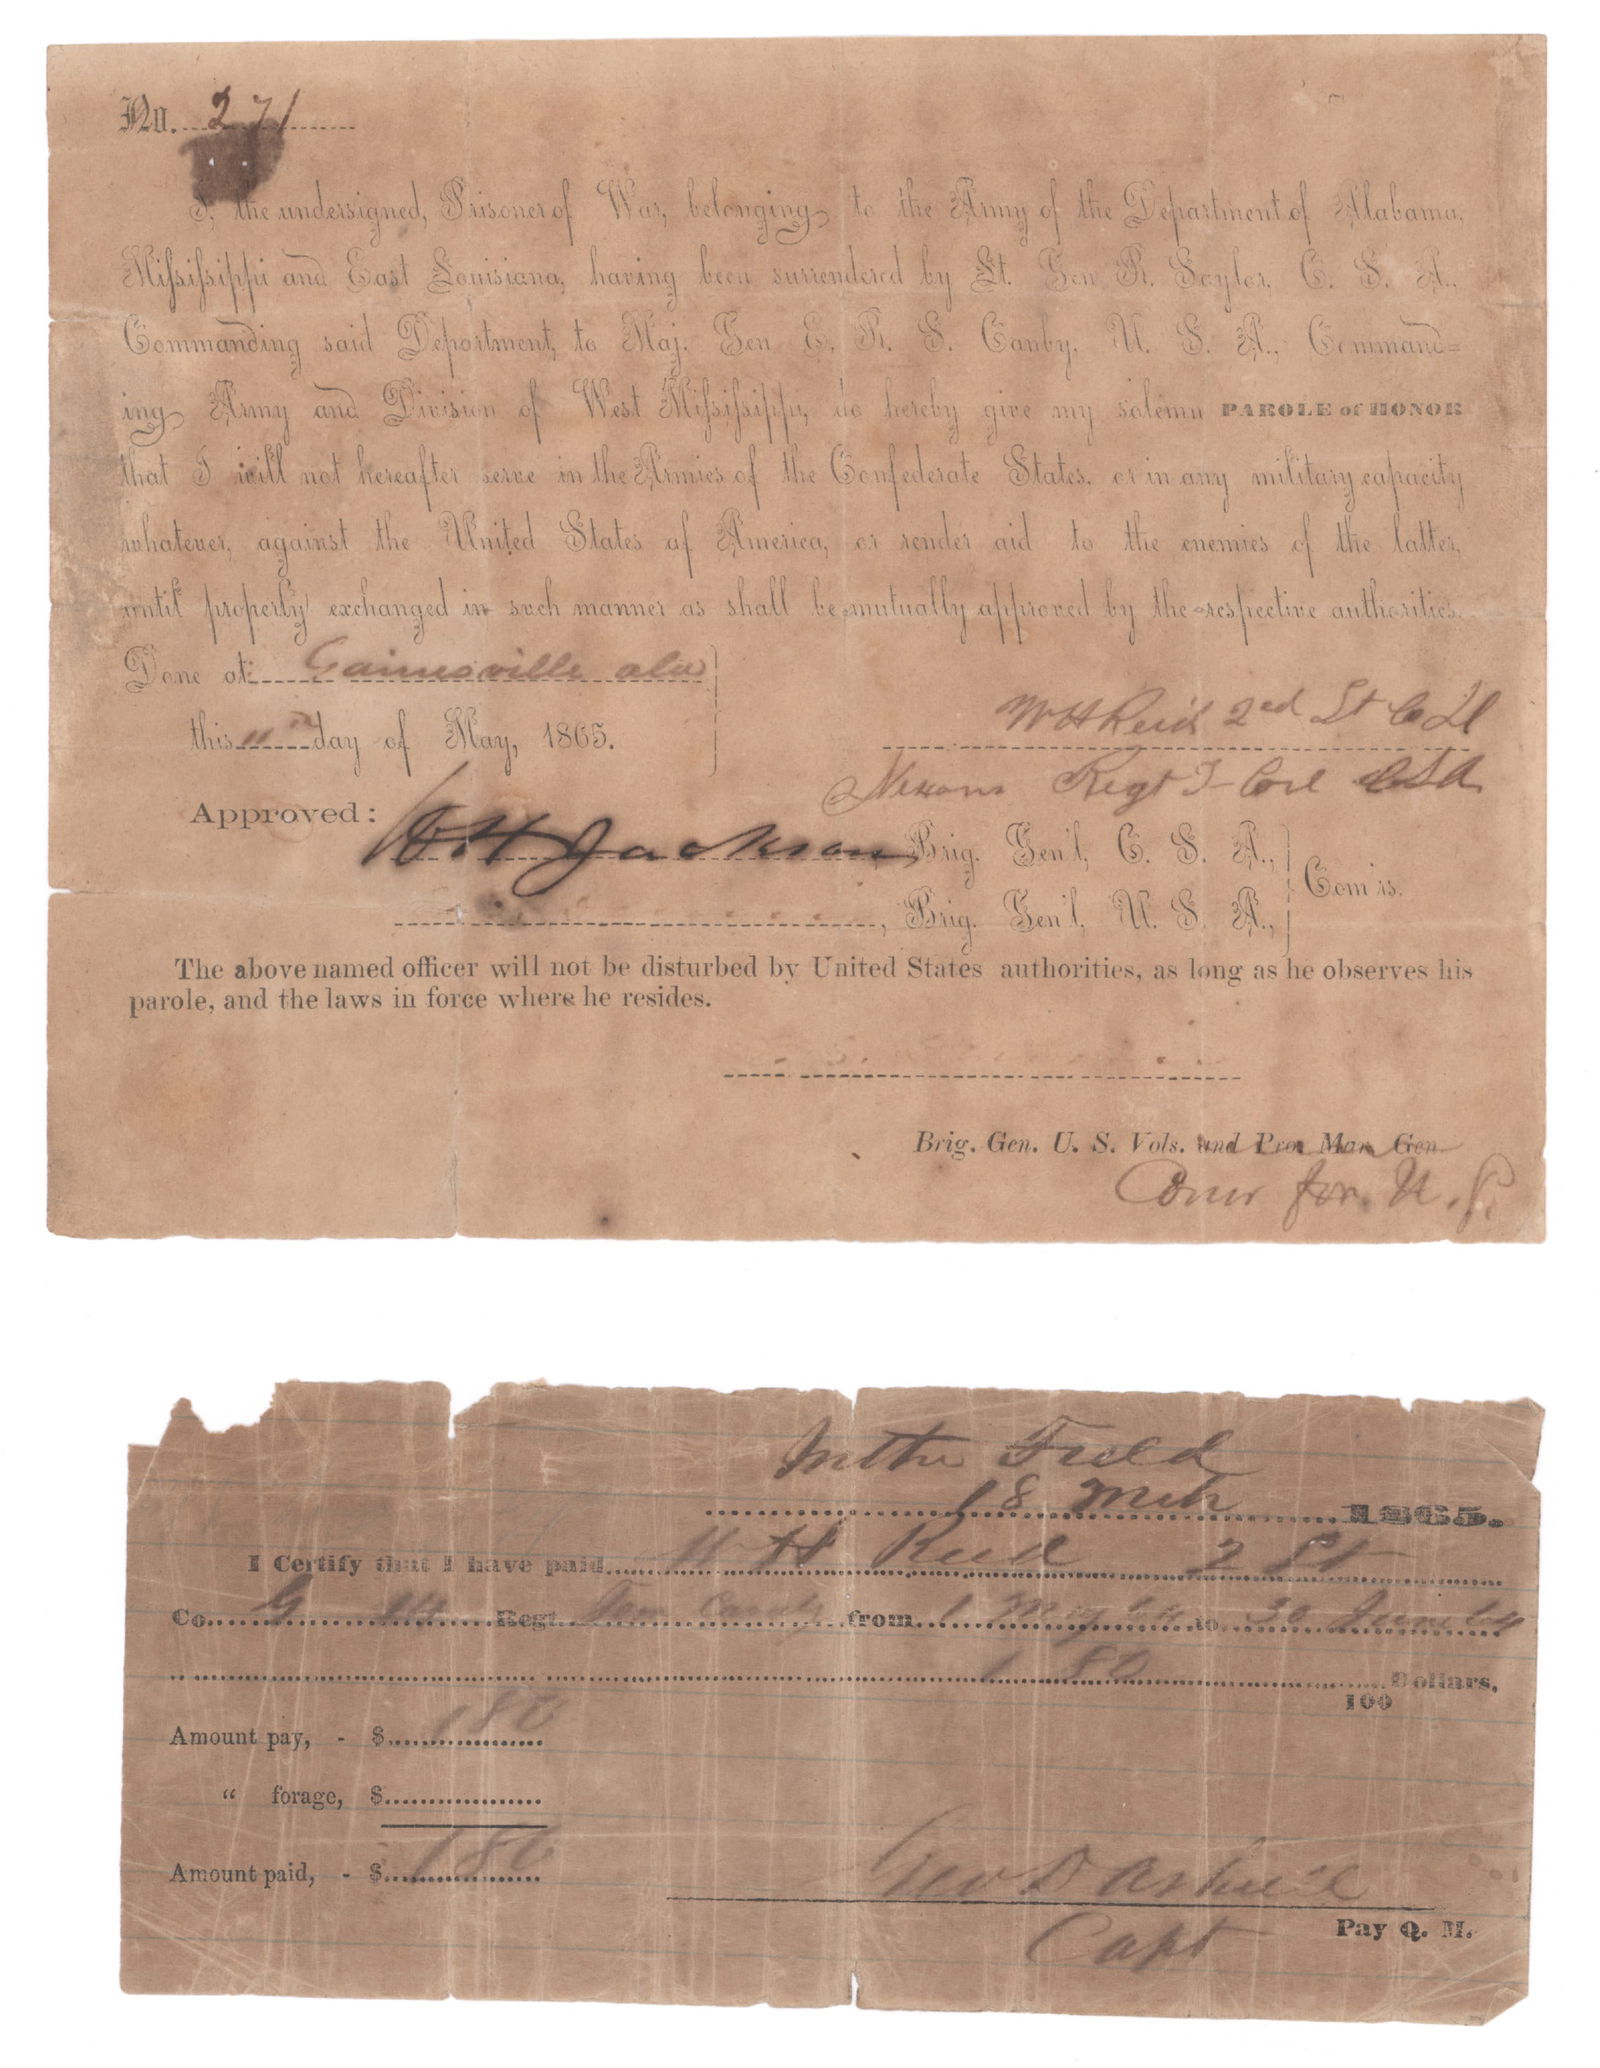 No. 271
I, the undersigned, Prisoner of War, belonging to the Army of the Department of Alabama,
Mississippi and East Louisiana, having been surrendered by Lt. Gen R. Taylor, C. S. A.,
Commanding said Department, to Maj. Gen E. R. S. Canby, U. S. A., Command=
ing Army and Division of West Mississippi, do hereby give my solemn PAROLE of HONOR
that I will not hereafter serve in the Armies of the Confederate States, or in any military capacity
whatever, against the United States of America, or render aid to the enemies of the latter,
until properly exchanged in such manner as shall be mutually approved by the respective authorities.
Done at: Gainesville ala
this 11th day of May, 1865.
W H Reid 2nd Lt Co
Nixons Regt T Cvl CSA
Approved: W. H Jackson, Brig. Gen'l, C. S. A.,
Com'rs.
, Brig. Gen'l, U. S. A.,
The above named officer will not be disturbed by United States authorities, as long as he observes his
parole, and the laws in force where he resides.
Brig. Gen. U. S. Vols. and Pro. Mar. Gen
Comr for U.S.
In the Field
18 Mch 1865.
I Certify that I have paid W H Reid 2 Lt
Co. G 14 Regt. Tenn Cavly from 1 May 64 to 30 June 64
180 Dollars,
100
Amount pay, - $ 180
“ forage, $
Amount paid, - $ 180
Geo D
Capt Pay Q. M.